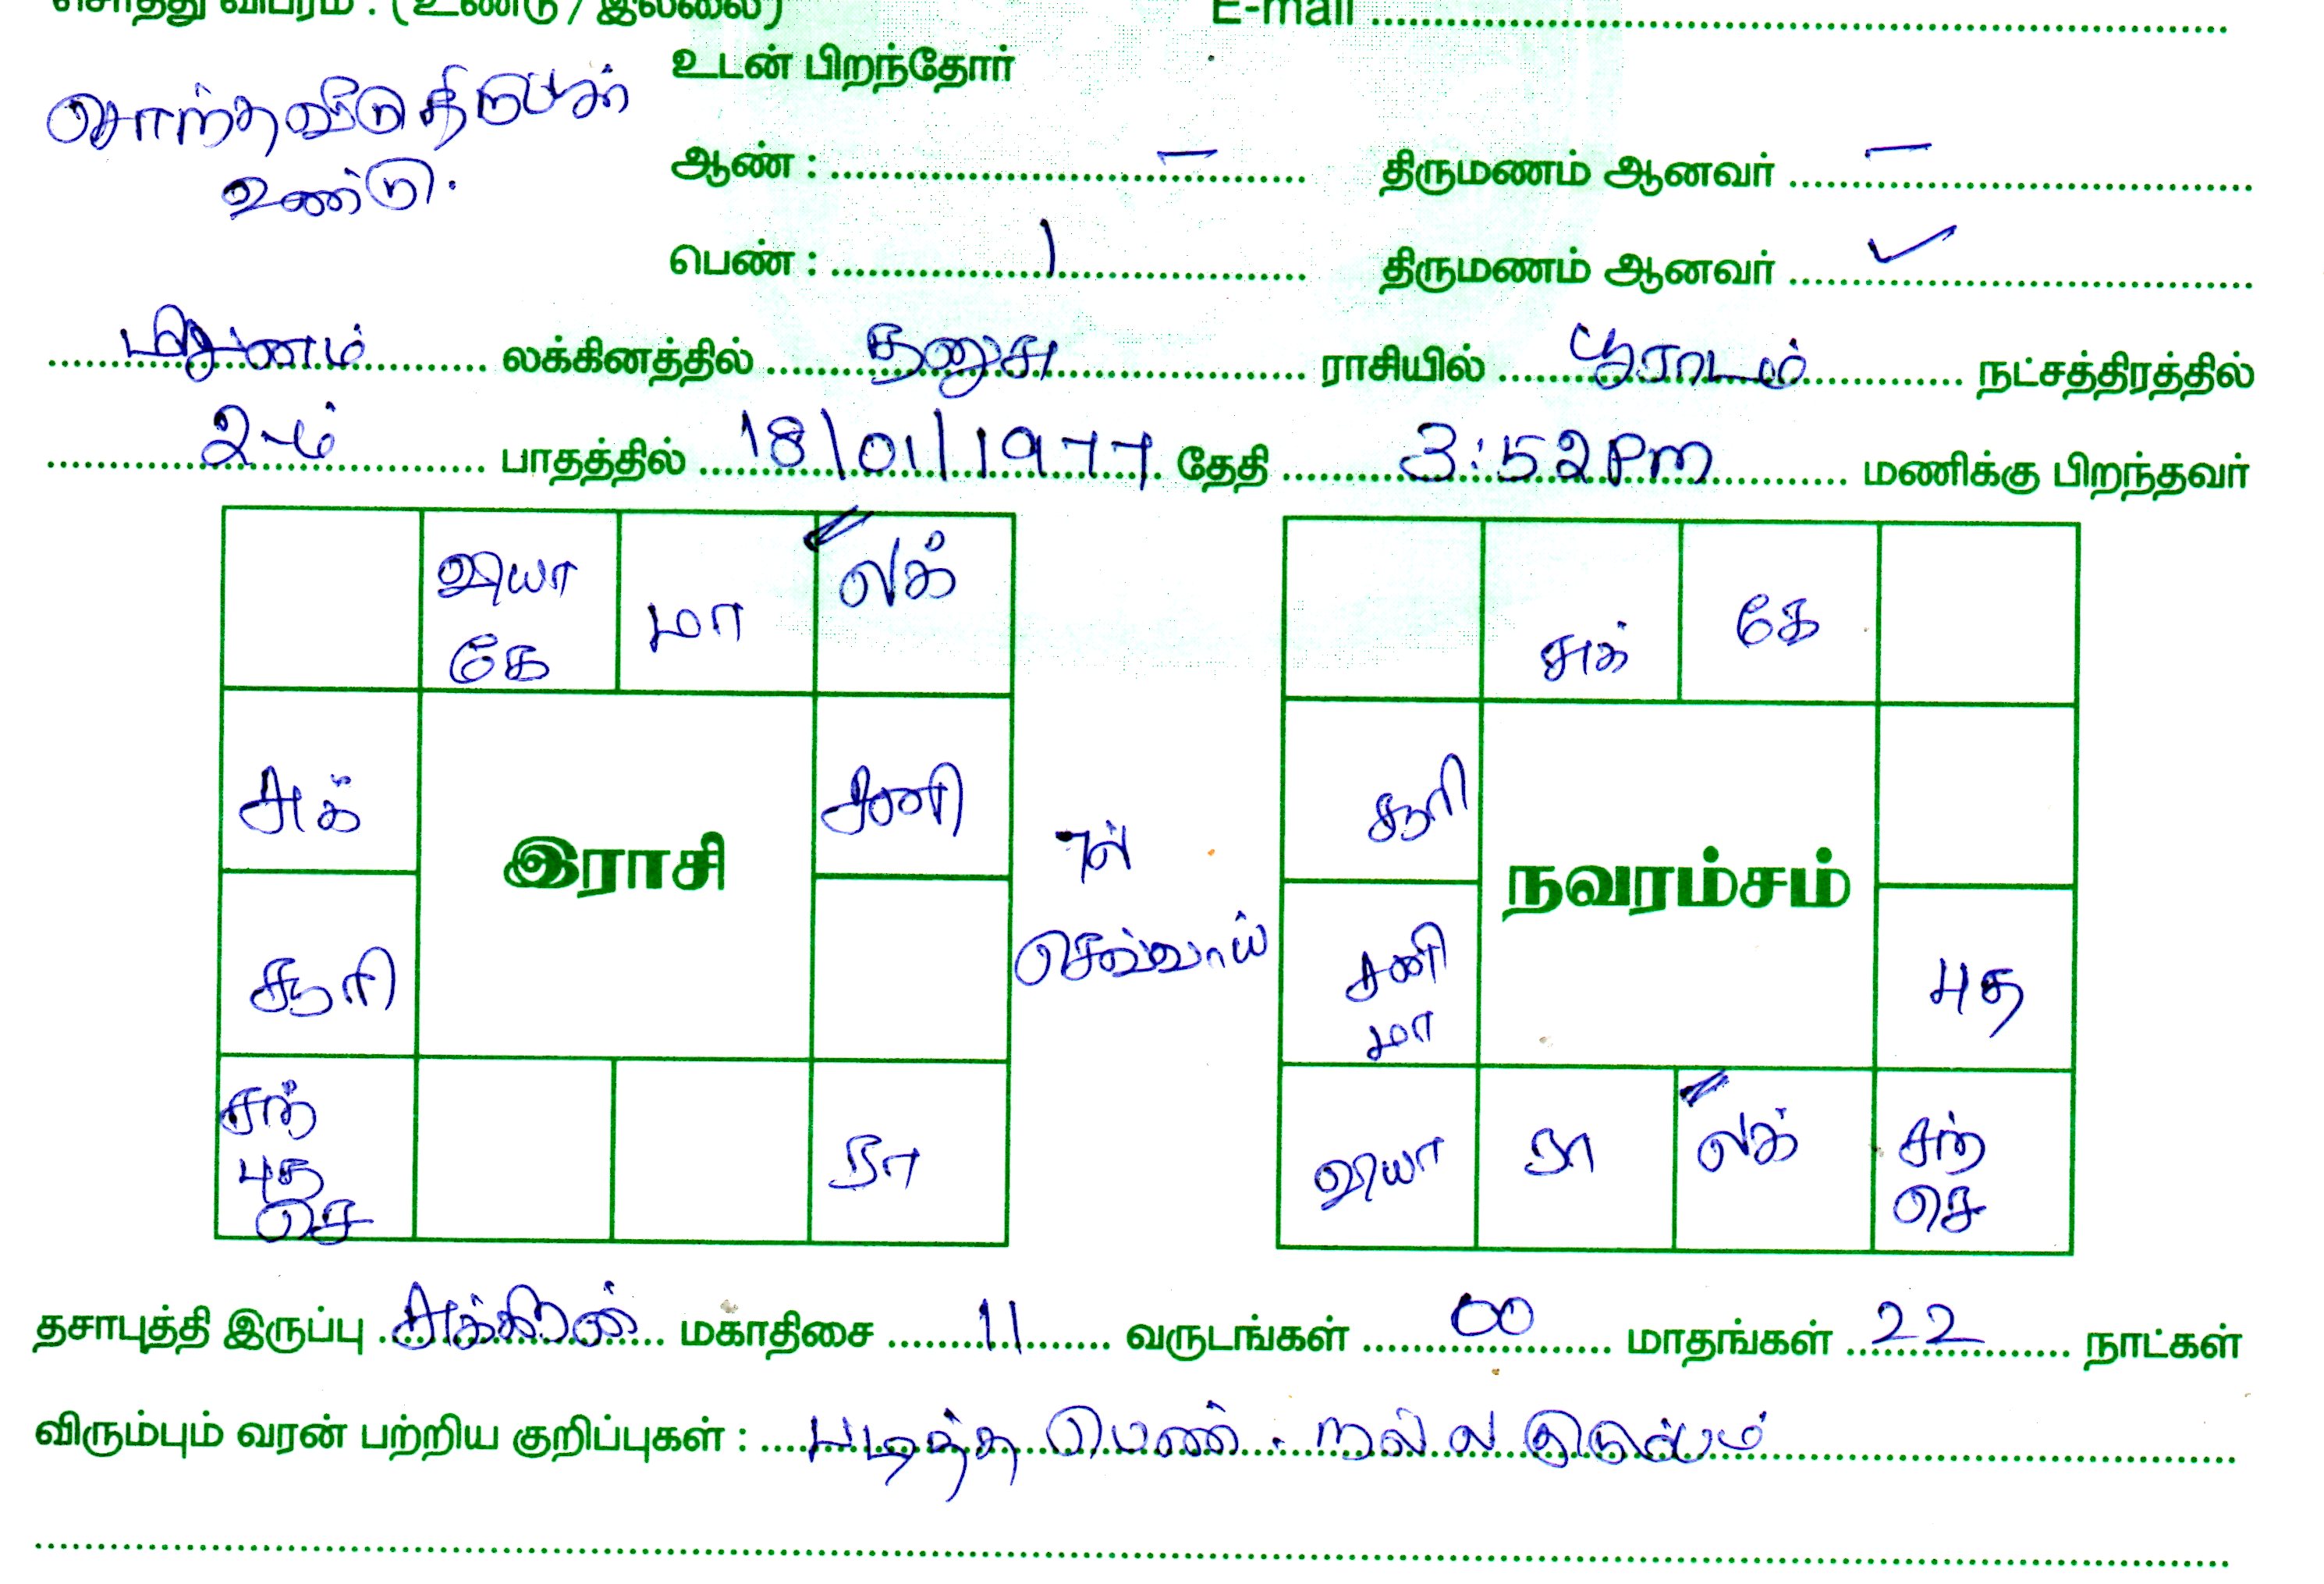 சொத்து விபரம் : (உண்டு / இல்லை) E-mail
சொந்தவீடு திருப்பூர்
உண்டு.
உடன் பிறந்தோர்
ஆண் : – திருமணம் ஆனவர் –
பெண் : 1 திருமணம் ஆனவர் ✓
மிதுனம் லக்கினத்தில் தனுசு ராசியில் பூராடம் நட்சத்திரத்தில்
2-ம் பாதத்தில் 18/01/1977 தேதி 3:52 PM மணிக்கு பிறந்தவர்
வியா கே மா லக்
சுக் சனி
இராசி
சூரி
சந் புத செ ரா
7ல் செவ்வாய்
சுக் கே
சூரி
நவரம்சம்
சனி மா புத
வியா ரா லக் சந் செ
தசாபுத்தி இருப்பு சுக்கிரன் மகாதிசை 11 வருடங்கள் 00 மாதங்கள் 22 நாட்கள்
விரும்பும் வரன் பற்றிய குறிப்புகள் : படித்த பெண். நல்ல குடும்பம்